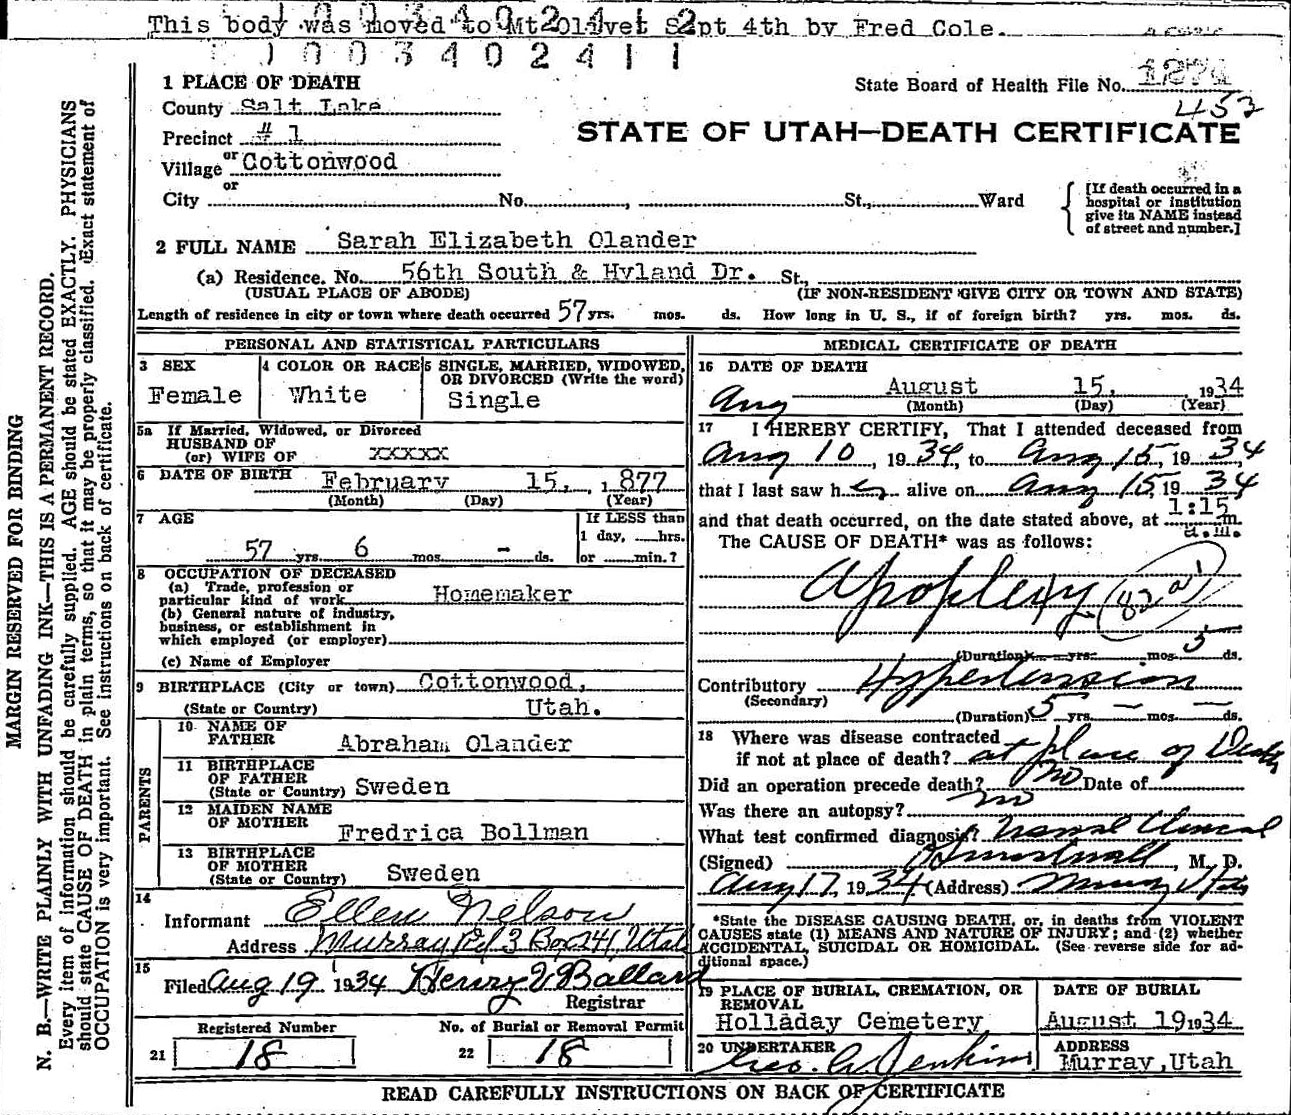 This body was moved to Mt Olivet Sept 4th by Fred Cole.
1003402411
1 PLACE OF DEATH
State Board of Health File No. 1274
453
County Salt Lake
Precinct # 1
STATE OF UTAH—DEATH CERTIFICATE
or
Village Cottonwood
or
City No. , St., Ward
[If death occurred in a
hospital or institution
give its NAME instead
of street and number.]
2 FULL NAME Sarah Elizabeth Olander
(a) Residence. No. 56th South & Hyland Dr. St.,
(USUAL PLACE OF ABODE) (IF NON-RESIDENT GIVE CITY OR TOWN AND STATE)
Length of residence in city or town where death occurred 57 yrs. mos. ds. How long in U. S., if of foreign birth? yrs. mos. ds.
PERSONAL AND STATISTICAL PARTICULARS
3 SEX
Female
4 COLOR OR RACE
White
5 SINGLE, MARRIED, WIDOWED,
OR DIVORCED (Write the word)
Single
5a If Married, Widowed, or Divorced
HUSBAND OF
(or) WIFE OF xxxxx
6 DATE OF BIRTH February 15, 1877
(Month) (Day) (Year)
7 AGE
57 yrs. 6 mos. - ds.
If LESS than
1 day, hrs.
or min.?
8 OCCUPATION OF DECEASED
(a) Trade, profession or
particular kind of work Homemaker
(b) General nature of industry,
business, or establishment in
which employed (or employer)
(c) Name of Employer
9 BIRTHPLACE (City or town) Cottonwood,
(State or Country) Utah.
PARENTS
10 NAME OF
FATHER Abraham Olander
11 BIRTHPLACE
OF FATHER
(State or Country) Sweden
12 MAIDEN NAME
OF MOTHER Fredrica Bollman
13 BIRTHPLACE
OF MOTHER
(State or Country) Sweden
14
Informant Ellen Nelson
Address Murray Rd 3 Box 241, Utah
15
Filed Aug 19 1934 Henry V Ballard
Registrar
Registered Number
21 18
No. of Burial or Removal Permit
22 18
MEDICAL CERTIFICATE OF DEATH
16 DATE OF DEATH
Aug August 15, 1934
(Month) (Day) (Year)
17 I HEREBY CERTIFY, That I attended deceased from
Aug 10, 1934, to Aug 15, 1934,
that I last saw her alive on Aug 15 1934
and that death occurred, on the date stated above, at 1:15 m.
a.m.
The CAUSE OF DEATH* was as follows:
Apoplexy (82a)
(Duration) yrs. mos. 5 ds.
Contributory Hypertension
(Secondary)
(Duration) 5 yrs. — mos. — ds.
18 Where was disease contracted
if not at place of death? at place of Death
Did an operation precede death? no Date of
Was there an autopsy? no
What test confirmed diagnosis? Clinical
(Signed) , M. D.
Aug 17, 1934 (Address) Murray Utah
*State the DISEASE CAUSING DEATH, or, in deaths from VIOLENT
CAUSES state (1) MEANS AND NATURE OF INJURY; and (2) whether
ACCIDENTAL, SUICIDAL OR HOMICIDAL. (See reverse side for ad-
ditional space.)
19 PLACE OF BURIAL, CREMATION, OR
REMOVAL
Holladay Cemetery
DATE OF BURIAL
August 19 1934
20 UNDERTAKER
Geo. W. Jenkins
ADDRESS
Murray, Utah
READ CAREFULLY INSTRUCTIONS ON BACK OF CERTIFICATE
MARGIN RESERVED FOR BINDING
N. B.—WRITE PLAINLY WITH UNFADING INK—THIS IS A PERMANENT RECORD.
Every item of information should be carefully supplied. AGE should be stated EXACTLY. PHYSICIANS
should state CAUSE OF DEATH in plain terms, so that it may be properly classified. Exact statement of
OCCUPATION is very important. See instructions on back of certificate.